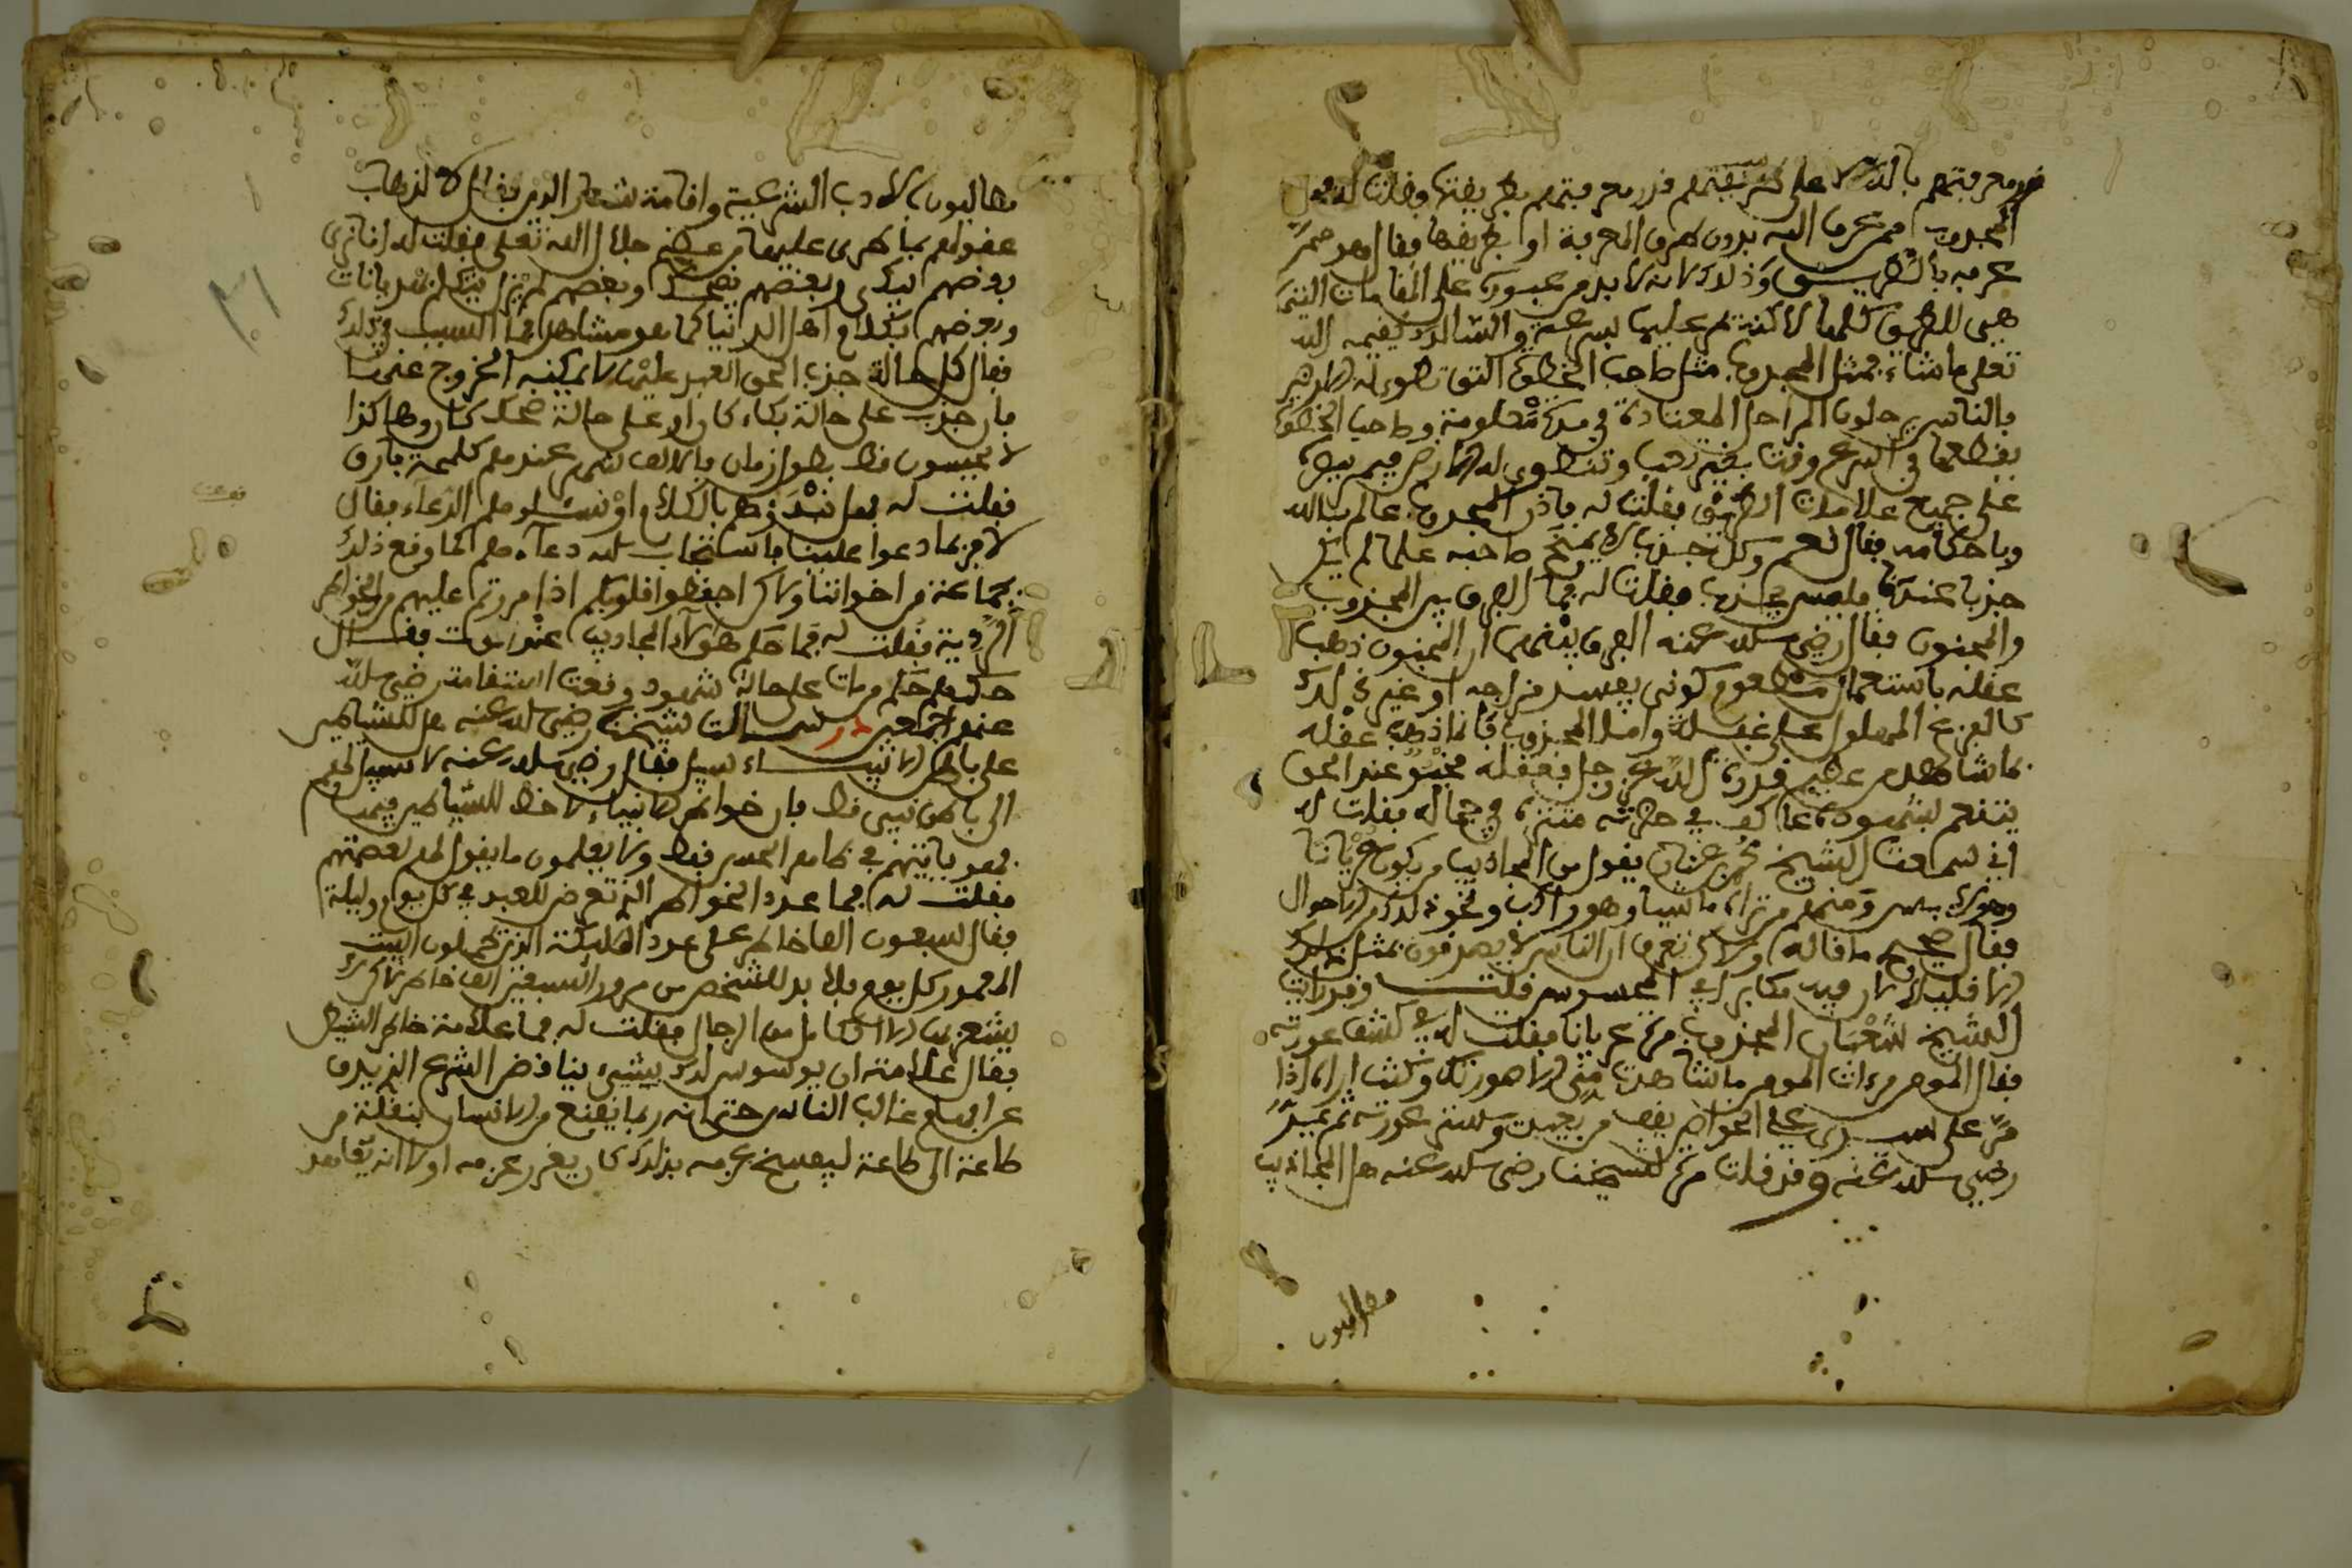 قدر معرفتهم بالله لا على طريقتهم قدر معرفتهم بطريقتها وقلت له هل
المجذوب ممن عرف الله بدون طرق المعرفة او بطريقها فقال هو ممن
عرفه بالطريق وذلك لانه لا بد من عبوره على المقامات التي
هي للطريق كلها لاكنه يمر عليها بسرعة والسالك يقيمه الله
تعلى ما شاء فمثل المجذوب مثل صاحب الخطوة التي تطوى له الطريق
فالناس يرحلون المراحل المعتادة في مدة معلومة وصاحب الخطوة
يقطعها في اسرع وقت بغير تعب وتنطوي له الارض فيمر بها
على جميع علامات الطريق فقلت له فاذن المجذوب عالم بالله
وباحكامه فقال نعم وكل جذب لا يمنح صاحبه علما لم يكن
جذبا عندنا فليس بجذب فقلت له فما الفرق بين المجذوب
والمجنون فقال رضي الله عنه الفرق بينهما ان المجنون ذهب
عقله باستعمال مطعوم كوني يفسد مزاجه او غير ذلك
كالفزع المهول على غفلة واما المجذوب فانما ذهب عقله
بما شاهده من عظيم قدرة الله عز وجل فعقله مخبوء عند الحق
يتنعم بشهوده عاكف في حضرته متنزه في جماله فقلت له
اني سمعت الشيخ محمد عنان يقول من المجاذيب من يكون عريانا
وهو لابس ومنهم من تراه ماشيا وهو راكب ونحو ذلك من الاحوال
فقال صحيح ما قاله ولاكن تعرف ان الناس لا يصدقون بمثل ذلك
الا قليلا لان فيه مكابرة في المحسوس قلت وقد رايت
الشيخ شعبان المجذوب مرة عريانا فقلت له في كشف عورته
فقال الموهم مرءات الموهم ما شاهدت مني الا صورتك وكنت اراه اذا
مر على سيدي علي الخواص يقف من بعيد وستر عورته ثم يمر
رضي الله عنه وقد قلت مرة لشيخنا رضي الله عنه هل المجاذيب
مطالبون
مطالبون بالادب الشرعية واقامة شعار الدين فقال لا لذهاب
عقولهم بما طرى عليها من عظيم جلال الله تعلى فقلت له انا نرى
بعضهم يبكي وبعضهم يضحك وبعضهم لم يزل يتكلم بهذيانات
وبعضهم بكلام اهل الدنيا كما هو مشاهد فما السبب في ذلك
فقال كل حالة جذب الحق العبد عليها لا يمكنه الخروج عنها
فان جذب على حالة بكاء كان او على حالة ضحك كان وهاكذا
لا يحسون قط بطول زمان فالالف شهر عندهم كلمحة بارق
فقلت له فهل نبدؤهم بالكلام او نسئلوهم الدعاء فقال
لا فربما دعوا علينا فاستجاب الله دعآءهم كما وقع ذلك
لجماعة من اخواننا ولاكن احفظوا قلوبكم اذا مررتم عليهم من الخواطر
الردية فقلت له فما حكم هؤلاء المجاذيب عند الموت فقال
حكمهم حكم من مات على حالة شهود وقعت استقامته رضي الله
عنهم اجمعين در سالت شيخنا رضي الله عنه هل للشياطين
على باطن الانبياء سبيل فقال رضي الله عنه لا سبيل لهم
الى باطن نبي قط فان خواطر الانبياء لا حظ للشياطين فيها
فهو ياتيهم في ظاهر الحس فقط ولا يفعلون ما يقول لهم لعصمتهم
فقلت له فما عدد الخواطر التي تعرض للعبد في كل يوم وليلة
فقال سبعون الف خاطر على عدد الملائكة الذين يدخلون البيت
المعمور كل يوم فلا بد للشخص من مرور السبعين الف خاطر لاكن لا
يشعر بها الا الكامل من الرجال فقلت له فما علامة خاطر الشيطان
فقال علامته ان يوسوس لك بشيء يناقض الشرع الذي يدق
عن ابصار غالب الناس حتى انه ربما يقنع من الانسان بنقله من
طاعة الى طاعة ليفسخ عزمه بذلك كان يغرر عزمه اولا انه يعاهد